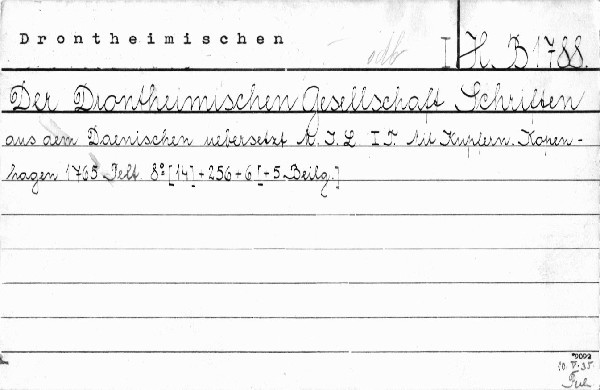 Drontheimischen
I H. B 1788.
Der Drontheimischen Gesellschaft Schriften
aus dem Daenischen uebersetzt A. J. L I T. Mit Kupfern. Kopen-
hagen 1765 Pelt. 8° [14]+256+6 [+5 Beilg.]
10. V. 35